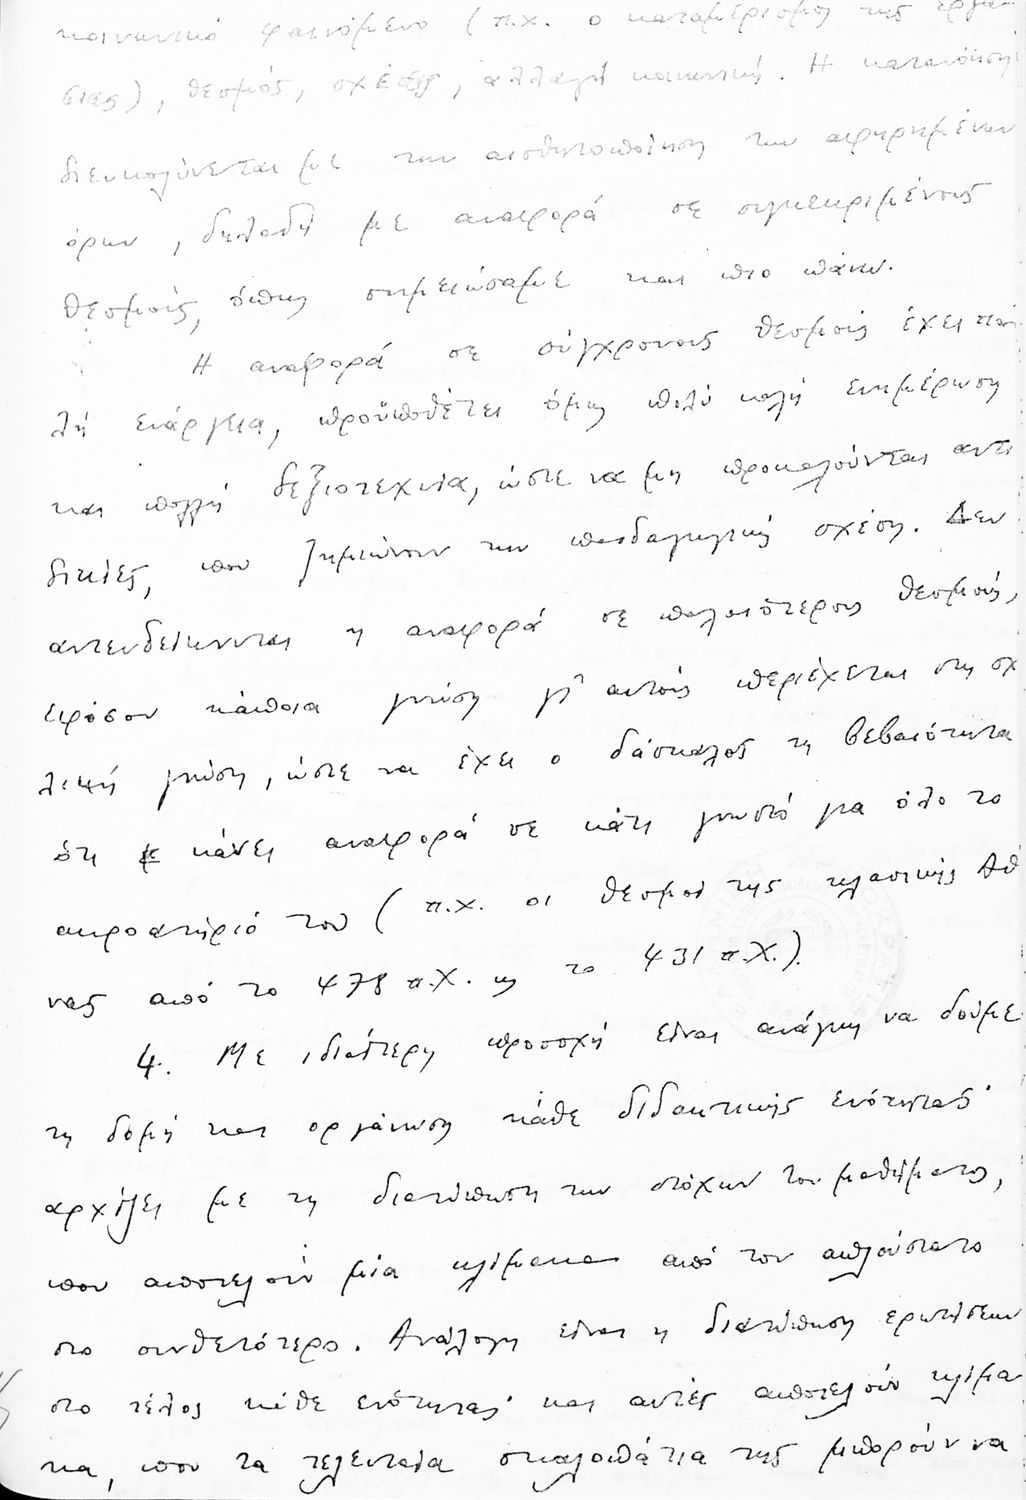 κοινωνικό φαινόμενο (π.χ. ο καταμερισμός της εργα-
σίας), θεσμός, σχέσεις, αλλαγή κοινωνική. Η κατανόηση
διευκολύνεται με την αισθητοποίηση των αφηρημένων
όρων, δηλαδή με αναφορά σε συγκεκριμένους
θεσμούς, όπως σημειώσαμε και πιο πάνω.
Η αναφορά σε σύγχρονους θεσμούς έχει πολ
λή ενάργεια, προϋποθέτει όμως πολύ καλή ενημέρωση
και πολλή δεξιοτεχνία, ώστε να μη προκαλούνται αντι
δικίες, που ζημιώνουν την παιδαγωγική σχέση. Δεν
αντενδείκνυται η αναφορά σε παλαιότερους θεσμούς,
εφόσον κάποια γνώση γι' αυτούς περιέχεται στη σχ
λική γνώση, ώστε να έχει ο δάσκαλος τη βεβαιότητα
ότι κάνει αναφορά σε κάτι γνωστό για όλο το
ακροατήριό του (π.χ. οι θεσμοί της κλασικής Αθ
νας από το 478 π.Χ. ως το 431 π.Χ.).
4. Με ιδιαίτερη προσοχή είναι ανάγκη να δούμε
τη δομή και οργάνωση κάθε διδακτικής ενότητας·
αρχίζει με τη διατύπωση των στόχων του μαθήματος,
που αποτελούν μία κλίμακα από τον απλούστατο
στο συνθετότερο. Ανάλογη είναι η διατύπωση ερωτήσεων
στο τέλος κάθε ενότητας· και αυτές αποτελούν κλίμα
κα, που τα τελευταία σκαλοπάτια της μπορούν να